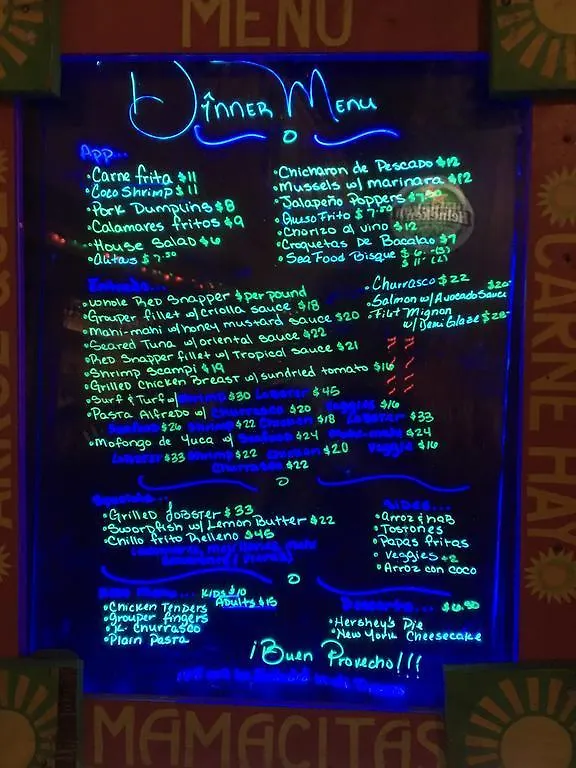 MENU
Dinner Menu
App...
Carne frita $11
Coco Shrimp $11
Pork Dumplings $8
Calamares fritos $9
House Salad $6
Alitas $7.50
Chicharon de Pescado $12
Mussels w/ marinara $12
Jalapeño Poppers $7.50
Queso Frito $7.50
Chorizo al vino $12
Croquetas De Bacalao $9
Sea Food Bisque $6 (S)
$11 (L)
Heineken
Whole Red Snapper $per pound
Grouper fillet w/ criolla sauce $18
Mahi-mahi w/ honey mustard sauce $20
Seared Tuna w/ oriental sauce $22
Red Snapper fillet w/ Tropical sauce $21
Shrimp Scampi $19
Grilled Chicken Breast w/ sundried tomato $16
Surf & Turf w/ Shrimp $30 Lobster $45
Pasta Alfredo w/ Churrasco $20 Veggies $16
Seafood $26 Shrimp $22 Chicken $18 Lobster $33
Mofongo de Yuca w/ Seafood $24 Mahi-mahi $24
Lobster $33 Shrimp $22 Chicken $20 Veggie $16
Churrasco $22
Churrasco $22
Salmon w/ Avocado Sauce $20
Filet Mignon
w/ Demi Glaze $28
Specials...
Grilled Lobster $33
Swordfish w/ Lemon Butter $22
Chillo frito Relleno $45
Sides...
Arroz & hab
Tostones
Papas fritas
Veggies +2
Arroz con coco
Kids Menu... Kids $10
Adults $15
Chicken Tenders
Grouper fingers
K. Churrasco
Plain Pasta
Desserts... $6.50
Hershey's Pie
New York Cheesecake
¡Buen Provecho!!!
CARNE HAY
MAMACITAS